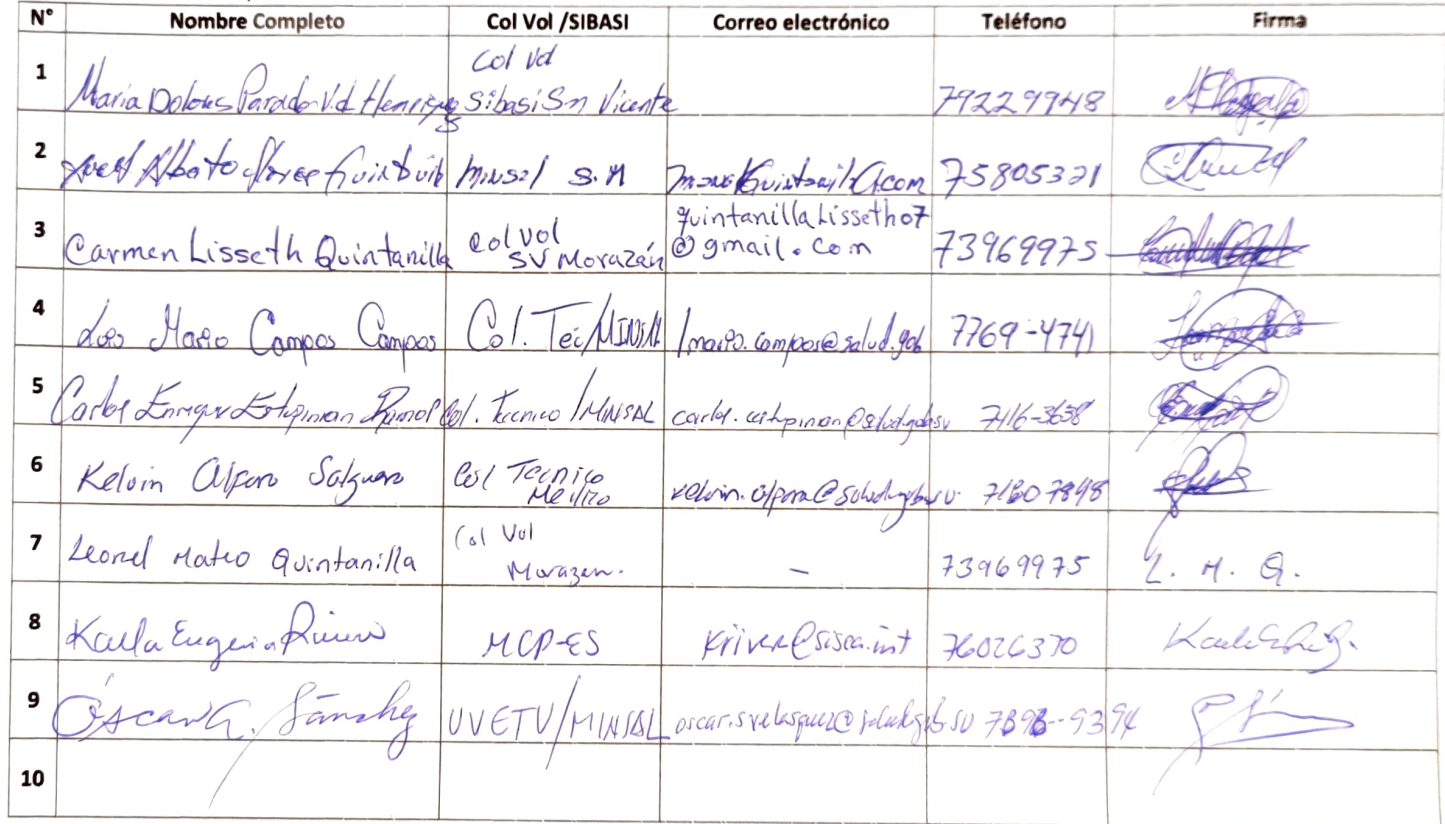 N° Nombre Completo Col Vol /SIBASI Correo electrónico Teléfono Firma
1 Maria Dolores Parada Vd Henriquez Col Vol Sibasi Sn Vicente 79229948
2 Alberto Minsal S.M 75805321
3 Carmen Lisseth Quintanilla Col Vol SV Morazán quintanillaLisseth07@gmail.com 73969975
4 Luis Mario Campos Campos Col. Tec/MINSAL lmario.campos@salud.gob 7769-4741
5 Carlos Enrique Estupinian Col. Tecnico /MINSAL 7116-3638
6 Kelvin Alfaro Salguero Col Tecnico Medico
7 Leonel Mateo Quintanilla Col Vol Morazan. – 73969975 L. M. Q.
8 Karla Eugenia Rivera MCP-ES krivera@sisca.int 76026370
9 Óscar G. Sánchez UVETV/MINSAL oscar.svelasquez@salud.gob.sv
10